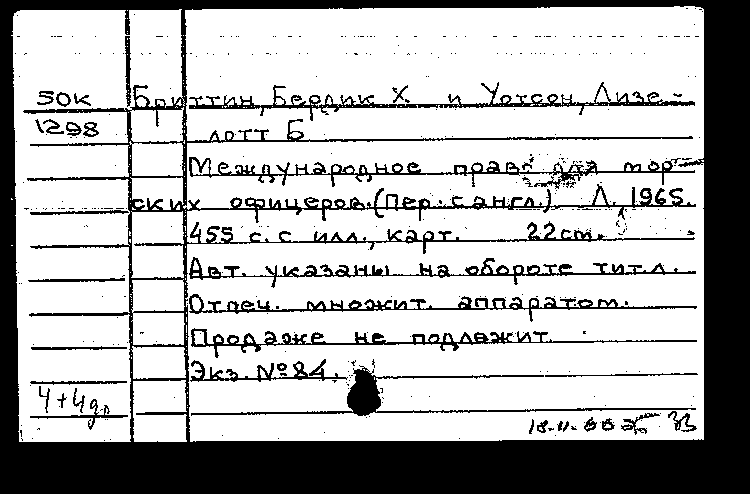 50К Бриттин, Бердик Х. и Уотсон, Лизе-
1298 лотт Б
Международное право для мор-
ских офицеров. (Пер. с англ.) Л. 1965.
455 с. с илл., карт. 22 cm.
Авт. указаны на обороте тит. л.
Отпеч. множит. аппаратом.
Продаже не подлежит.
Экз. № 84.
4+4др